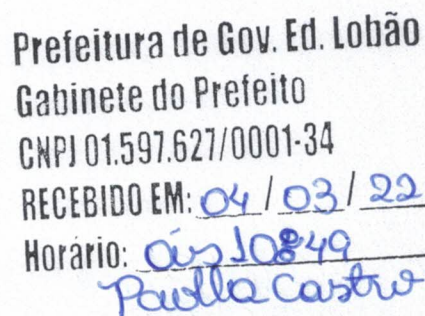 Prefeitura de Gov. Ed. Lobão
Gabinete do Prefeito
CNPJ 01.597.627/0001-34
RECEBIDO EM: 04 / 03 / 22
Horário: às 10:49
Paulla Castro